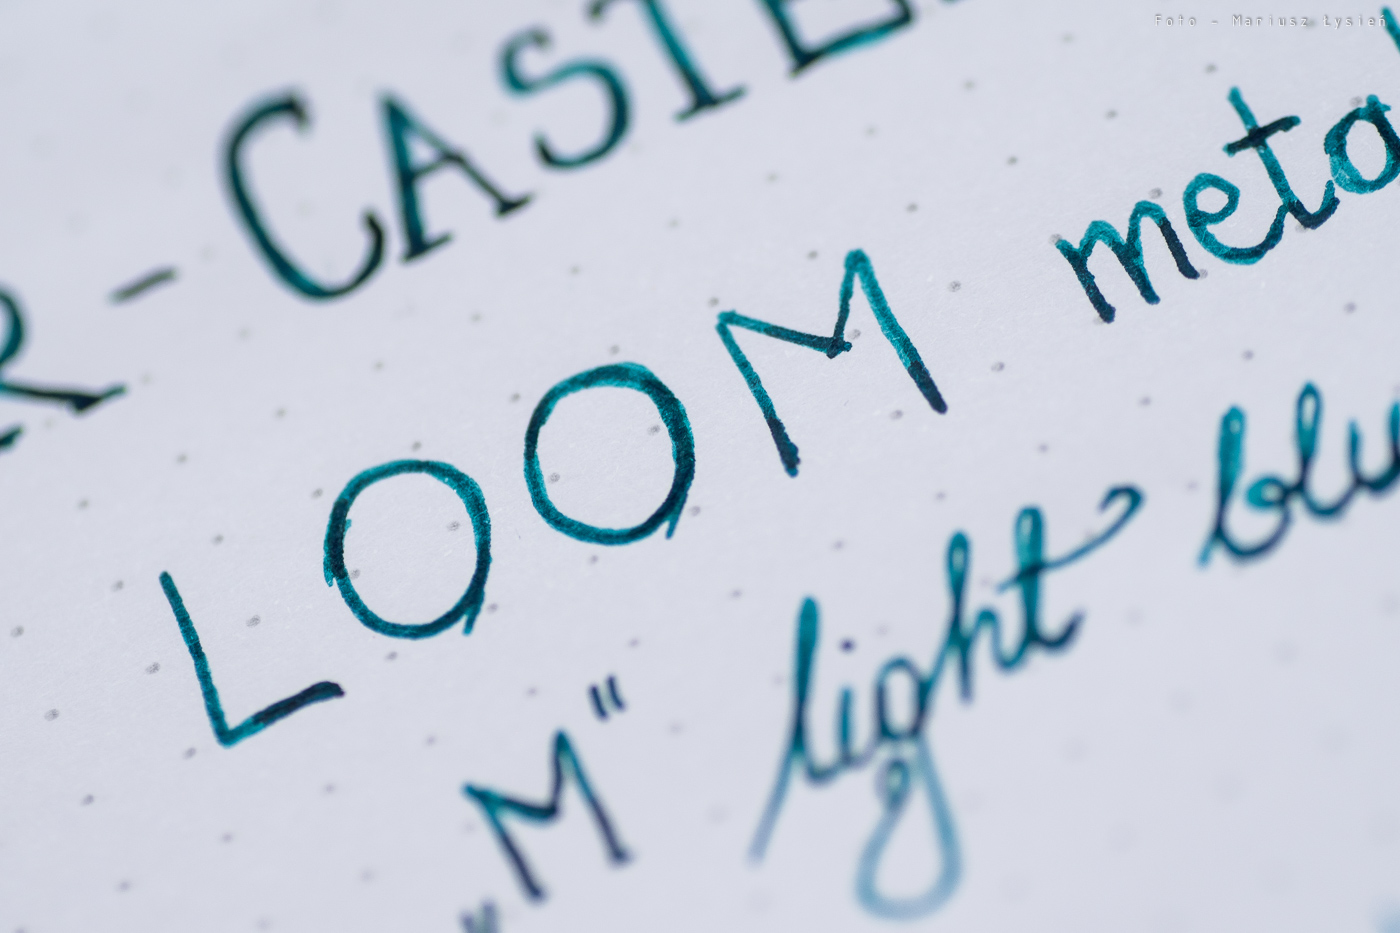 Foto - Mariusz Łysień
R - CASTE
LOOM meta
"M" light blu